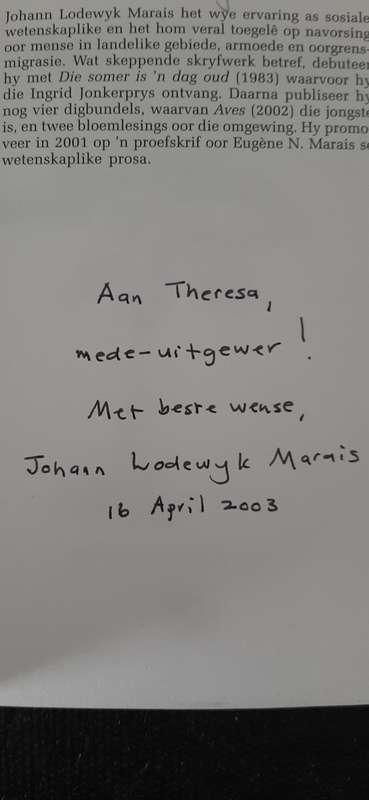 Johann Lodewyk Marais het wye ervaring as sosiale
wetenskaplike en het hom veral toegelê op navorsing
oor mense in landelike gebiede, armoede en oorgrens-
migrasie. Wat skeppende skryfwerk betref, debuteer
hy met Die somer is 'n dag oud (1983) waarvoor hy
die Ingrid Jonkerprys ontvang. Daarna publiseer hy
nog vier digbundels, waarvan Aves (2002) die jongste
is, en twee bloemlesings oor die omgewing. Hy promo-
veer in 2001 op 'n proefskrif oor Eugène N. Marais se
wetenskaplike prosa.
Aan Theresa,
mede-uitgewer!
Met beste wense,
Johann Lodewyk Marais
16 April 2003